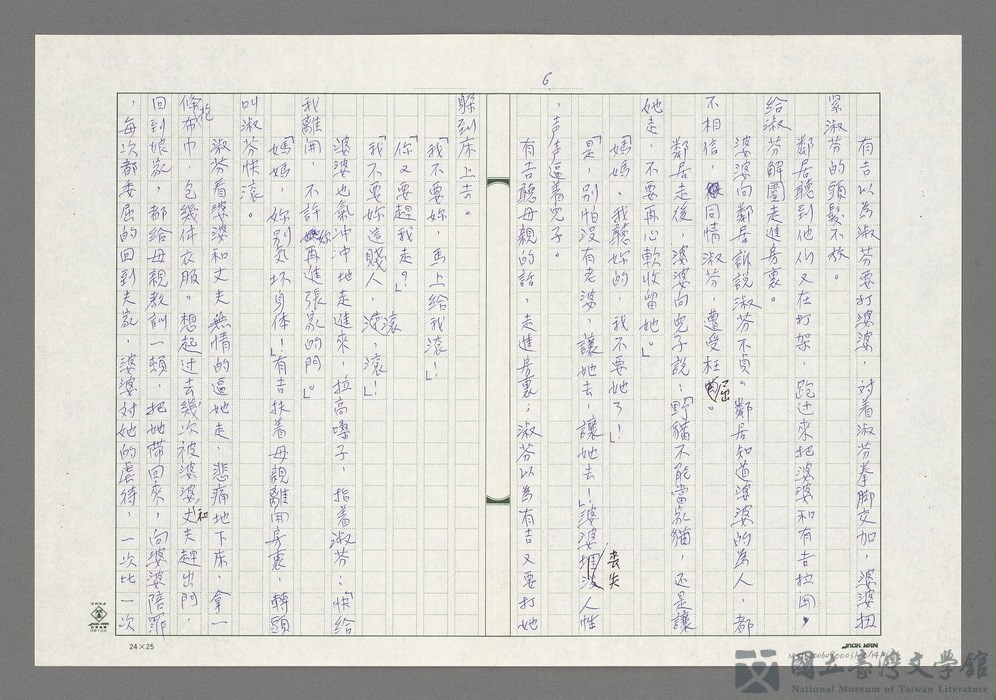 6
有吉以為淑芬要打婆婆，对着淑芬拳脚交加，婆婆扭
緊淑芬的頭髮不放。
鄰居聽到他们又在打架，跑过來把婆婆和有吉拉開，
給淑芬解圍走進房裏。
婆婆向鄰居訴說淑芬不貞。鄰居知道婆婆的為人，都
不相信，同情淑芬，遭受枉屈。
鄰居走後，婆婆向兒子說：「野貓不能當家貓，还是讓
她走，不要再心軟收留她。」
「媽媽。我聽妳的，我不要她了！」
「是，別怕沒有老婆，讓她去，讓她去！」婆婆喪失人性
，声声逼着兒子。
有吉聽母親的話，走進房裏；淑芬以為有吉又要打她
躲到床上去。
「我不要妳，馬上給我滾！」
「你又要趕我走？」
「我不要妳這賤人，滾，滾！」
婆婆也氣冲冲地走進來，拉高嗓子，指着淑芬：「快給
我離開，不許妳再進張家的門。」
「媽媽，妳別氣坏身体！」有吉扶着母親離開房裏，轉頭
叫淑芬快滾。
淑芬看婆婆和丈夫無情的逼她走，悲痛地下床，拿一
條花布巾，包幾件衣服。想起过去幾次被婆婆和丈夫趕出門，
回到娘家，都給母親教訓一頓，把她带回來，向婆婆陪罪
，每次都委屈的回到夫家，婆婆对她的虐待，一次比一次
24×25
JACK MAN
國立臺灣文學館
National Museum of Taiwan Literature